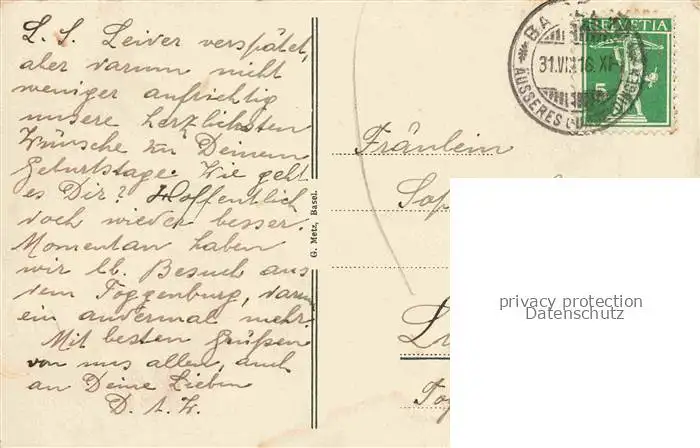 L. S. Leider verspätet,
aber darum nicht
weniger aufrichtig
unsere herzlichsten
Wünsche zu Deinem
Geburtstage. Wie geht
es Dir? Hoffentlich
doch wieder besser.
Momentan haben
wir lb. Besuch aus
dem Toggenburg, darum
ein andermal mehr.
Mit besten Grüßen
von uns allen, auch
an Deine Lieben
D. A. W.
G. Metz, Basel.
HELVETIA
5
31.VII.16.XI
ÄUSSERES
Fräulein
privacy protection
Datenschutz